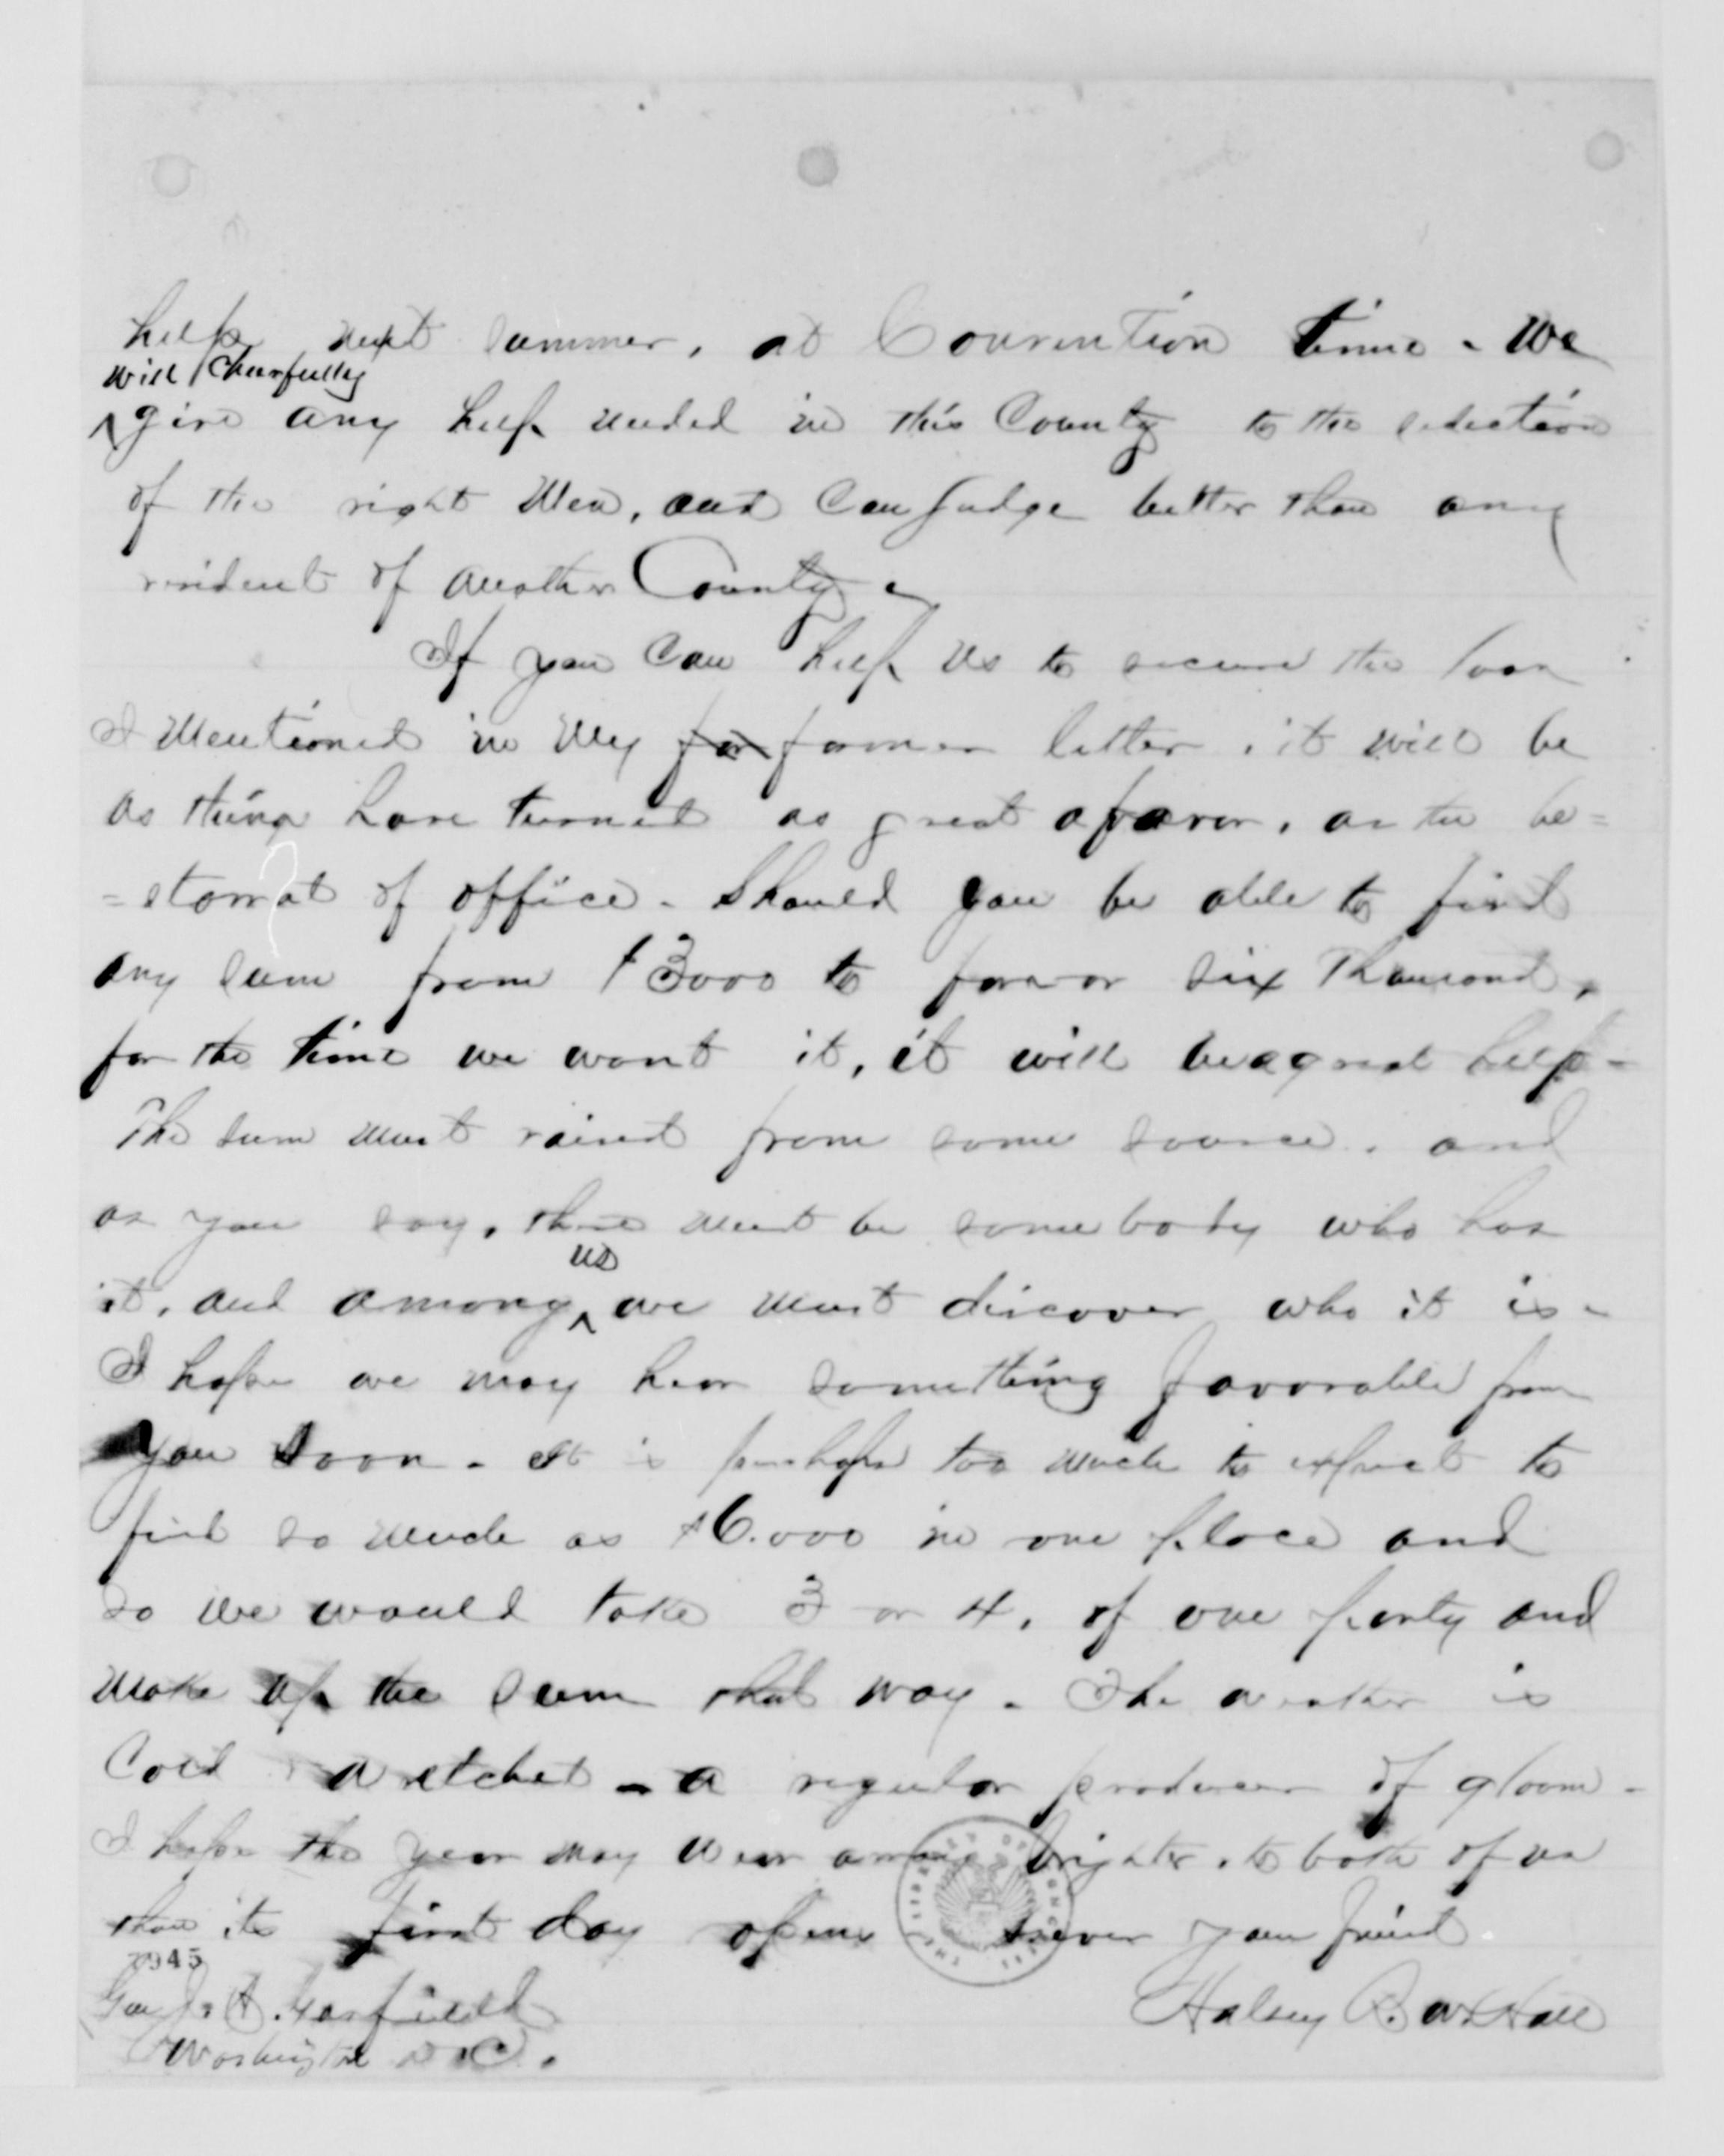 help next summer, at Convention time - We
will cheerfully
^ give any help needed in this County to the selection
of the right Men, and can judge better than any
resident of another County -
If you can help us to secure the loan
I mentioned in my for former letter, it will be
as things have turned as great a favor, as the be=
=stowal of office - Should you be able to find
any sum from $3000 to four or six Thousand,
for the time we want it, it will be a great help -
The sum must raised from some source, and
as you say, there must be somebody who has
us
it, and among ^ we must discover who it is -
I hope we may hear something favorable from
you soon - It is perhaps too much to expect to
find so much as $6.000 in one place and
so we would take 3 or 4, of one party and
make up the sum that way - The weather is
Cold wretched - a regular producer of gloom -
I hope the year may wear away brighter, to both of us
than its first day opens ever your friend
7945
Gen J. A. Garfield Halsey R. W. Hall
Washington D.C.